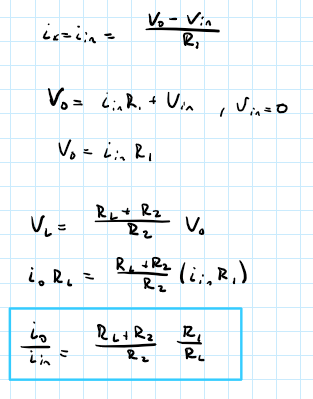 iₓ = i_in = (V₀ - V_in) / R₁
V₀ = i_in R₁ + V_in , V_in = 0
V₀ = i_in R₁
V_L = (R_L + R₂) / R₂ V₀
i₀ R_L = (R_L + R₂) / R₂ (i_in R₁)
i₀ / i_in = (R_L + R₂) / R₂ R₁ / R_L